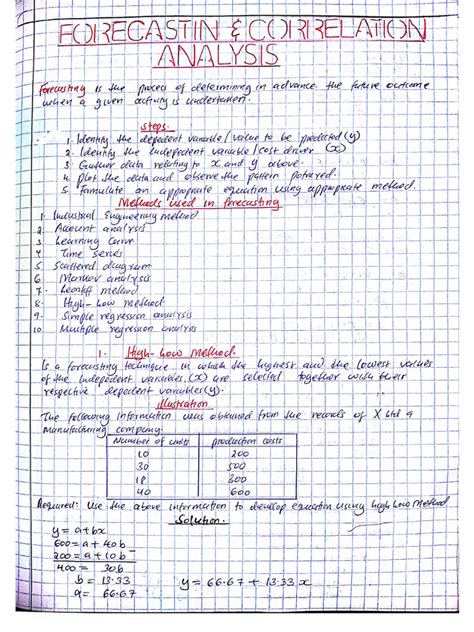 FORECASTIN & CORRELATION
ANALYSIS
Forecasting is the process of determining in advance the future outcome
when a given activity is undertaken.
Steps
1. Identify the depedent variable/value to be predicted (y)
2. Identify the independent variable/cost driver (x)
3. Gather data relating to x and y above.
4. Plot the data and observe the pattern
5. Formulate an appropriate equation using appropriate method.
Methods used in forecasting
1. Industrial Engineering method
2. Account analysis
3. Learning curve
4. Time series
5. Scattered diagram
6. Markov analysis
7. Leontiff method
8. High-low method
9. Simple regression analysis
10. Multiple regression analysis
1. High-Low Method.
Is a forecasting technique in which the highest and the lowest values
of the independent variables (x) are selected together with their
respective depedent variables(y).
Illustration
The following information was obtained from the records of X Ltd a
Manufacturing company:
Number of units production costs
10 200
30 500
18 300
40 600
Required: Use the above information to develop equation using high low Method
Solution.
y = a+bx
600 = a + 40b
200 = a + 10b
400 = 30b
b = 13.33 y = 66.67 + 13.33x
a = 66.67